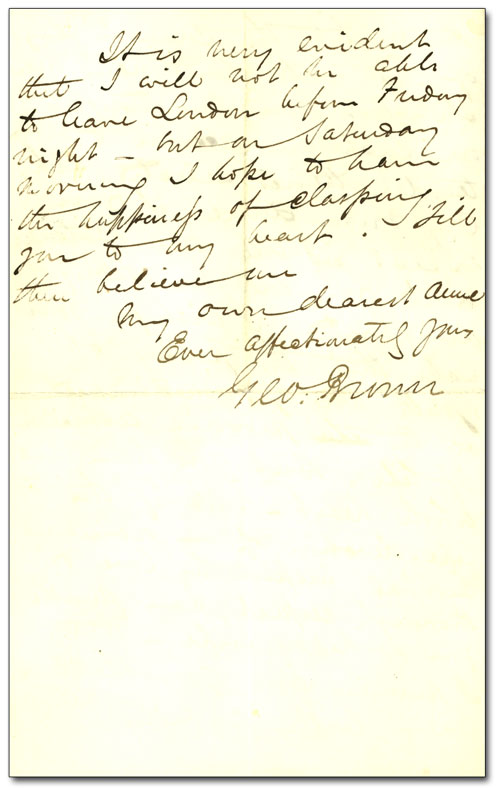 It is very evident
that I will not be able
to leave London before Friday
night – but on Saturday
morning I hope to have
the happiness of clasping
you to my heart. Till
then believe me
My own dearest Anne
Ever affectionately yours
Geo. Brown